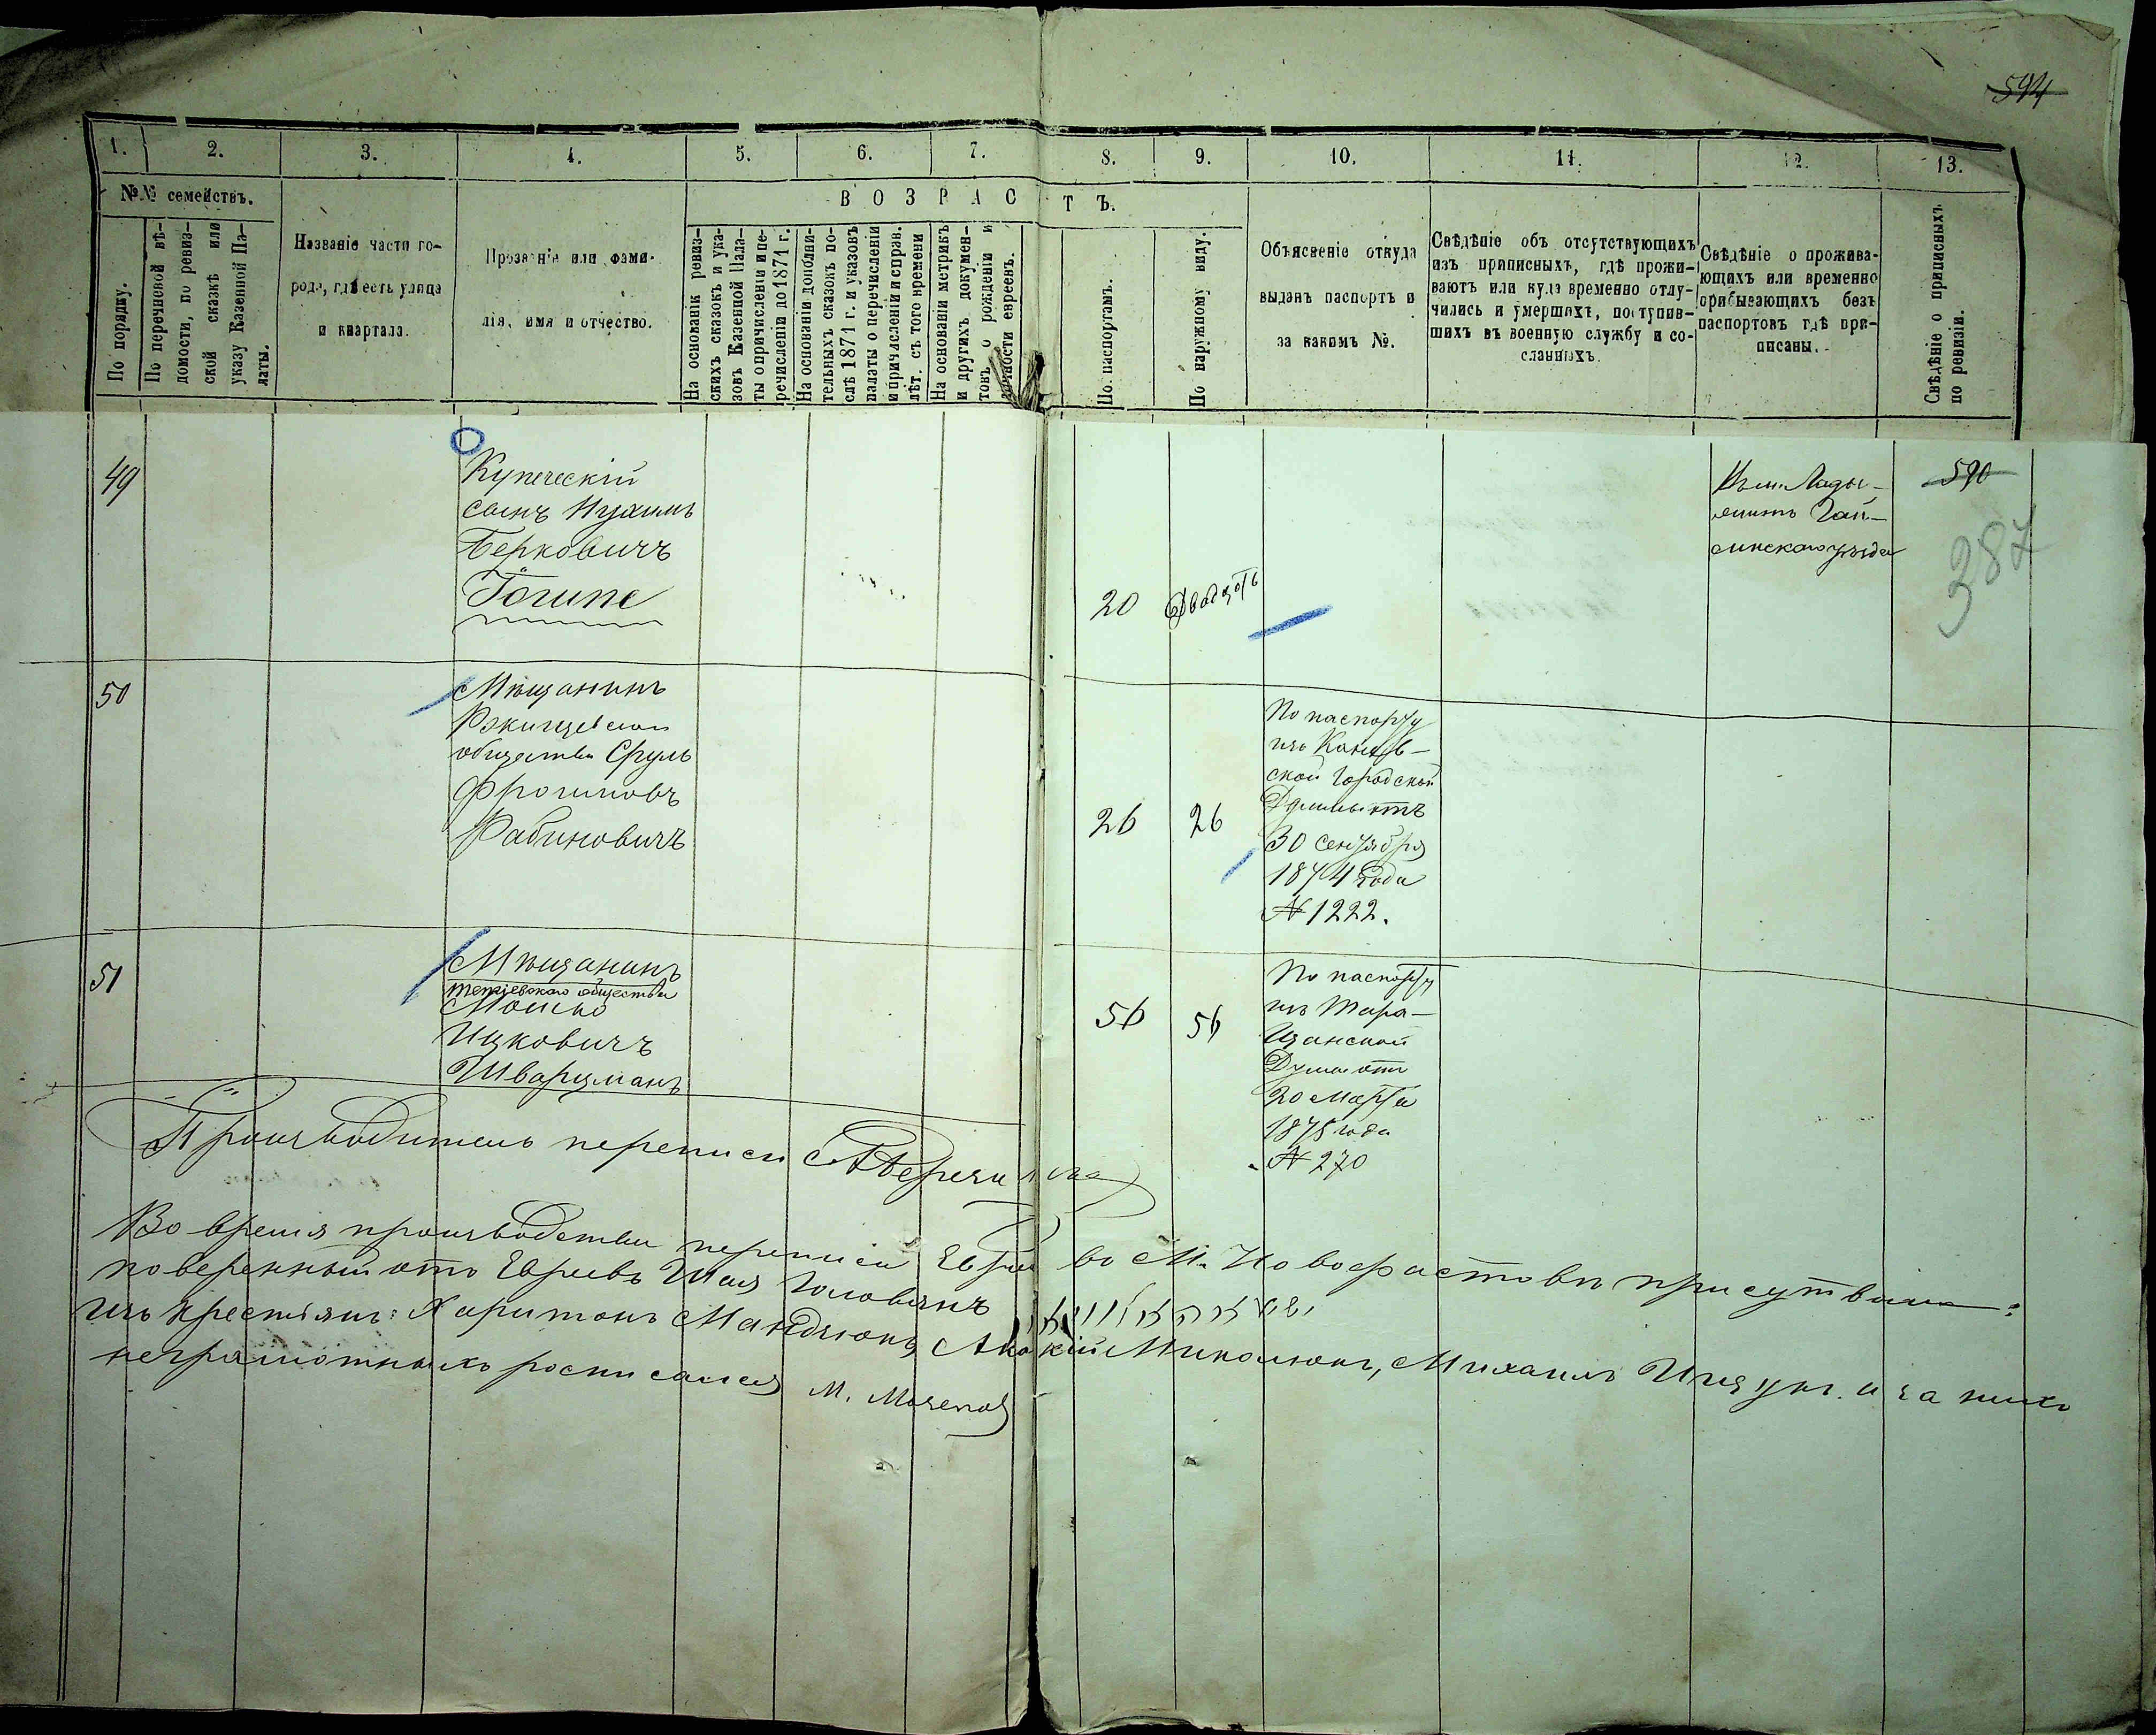 594
1. 2. 3. 4. 5. 6. 7. 8. 9. 10. 11. 12. 13.
№№ семействъ.
В О З Р А С Т Ъ.
По порядку.
По перечневой вѣ-
домости, по ревиз-
ской сказкѣ или
указу Казенной Па-
латы.
Названіе части го-
рода, гдѣ есть улица
и квартала.
Прозваніе или фами-
лія, имя и отчество.
На основаніи ревиз-
скихъ сказокъ и ука-
зовъ Казенной Пала-
ты о причисленіи и пе-
речисленіи до 1871 г.
На основаніи дополни-
тельныхъ сказокъ по-
слѣ 1871 г. и указовъ
палаты о перечисленіи
и причисленіи и справ.
лѣт. съ того времени
На основаніи метрикъ
и другихъ докумен-
товъ о рожденіи и
личности евреевъ.
По паспортамъ.
По наружному виду.
Объясненіе откуда
выданъ паспортъ и
за какимъ №.
Свѣдѣніе объ отсутствующихъ
изъ приписныхъ, гдѣ прожи-
ваютъ или куда временно отлу-
чились и умершихъ, поступив-
шихъ въ военную службу и со-
сланныхъ.
Свѣдѣніе о прожива-
ющихъ или временно
прибывающихъ безъ
паспортовъ гдѣ при-
писаны.
Свѣдѣніе о приписныхъ
по ревизіи.
49
Купеческій
сынъ Нухимъ
Берковичъ
20
Двадцать
Гай-
синскаго уѣзда
590
387
50
Мѣщанинъ
Ржищевскаго
общества Сруль
Фроимовъ
Рабиновичъ
26
26
По паспорту
изъ Канев-
ской Городской
Думы отъ
30 Сентября
1874 года
№ 1222.
51
Мѣщанинъ
Тетіевскаго общества
Мошко
Ицковичъ
Шварцманъ
56
56
По паспорту
изъ Тара-
щанской
Думы отъ
20 Марта
1875 года
№ 270
Производитель переписи
Во время производства переписи Еврей въ М. Новофастовѣ присутствовали:
повѣренный отъ Евреевъ Шая
изъ крестьянъ: Харитонъ Мандзюкъ, Михаилъ и за нихъ
неграмотныхъ росписался М.